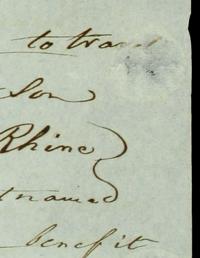 to trans
Son
Rhine
named
benefit